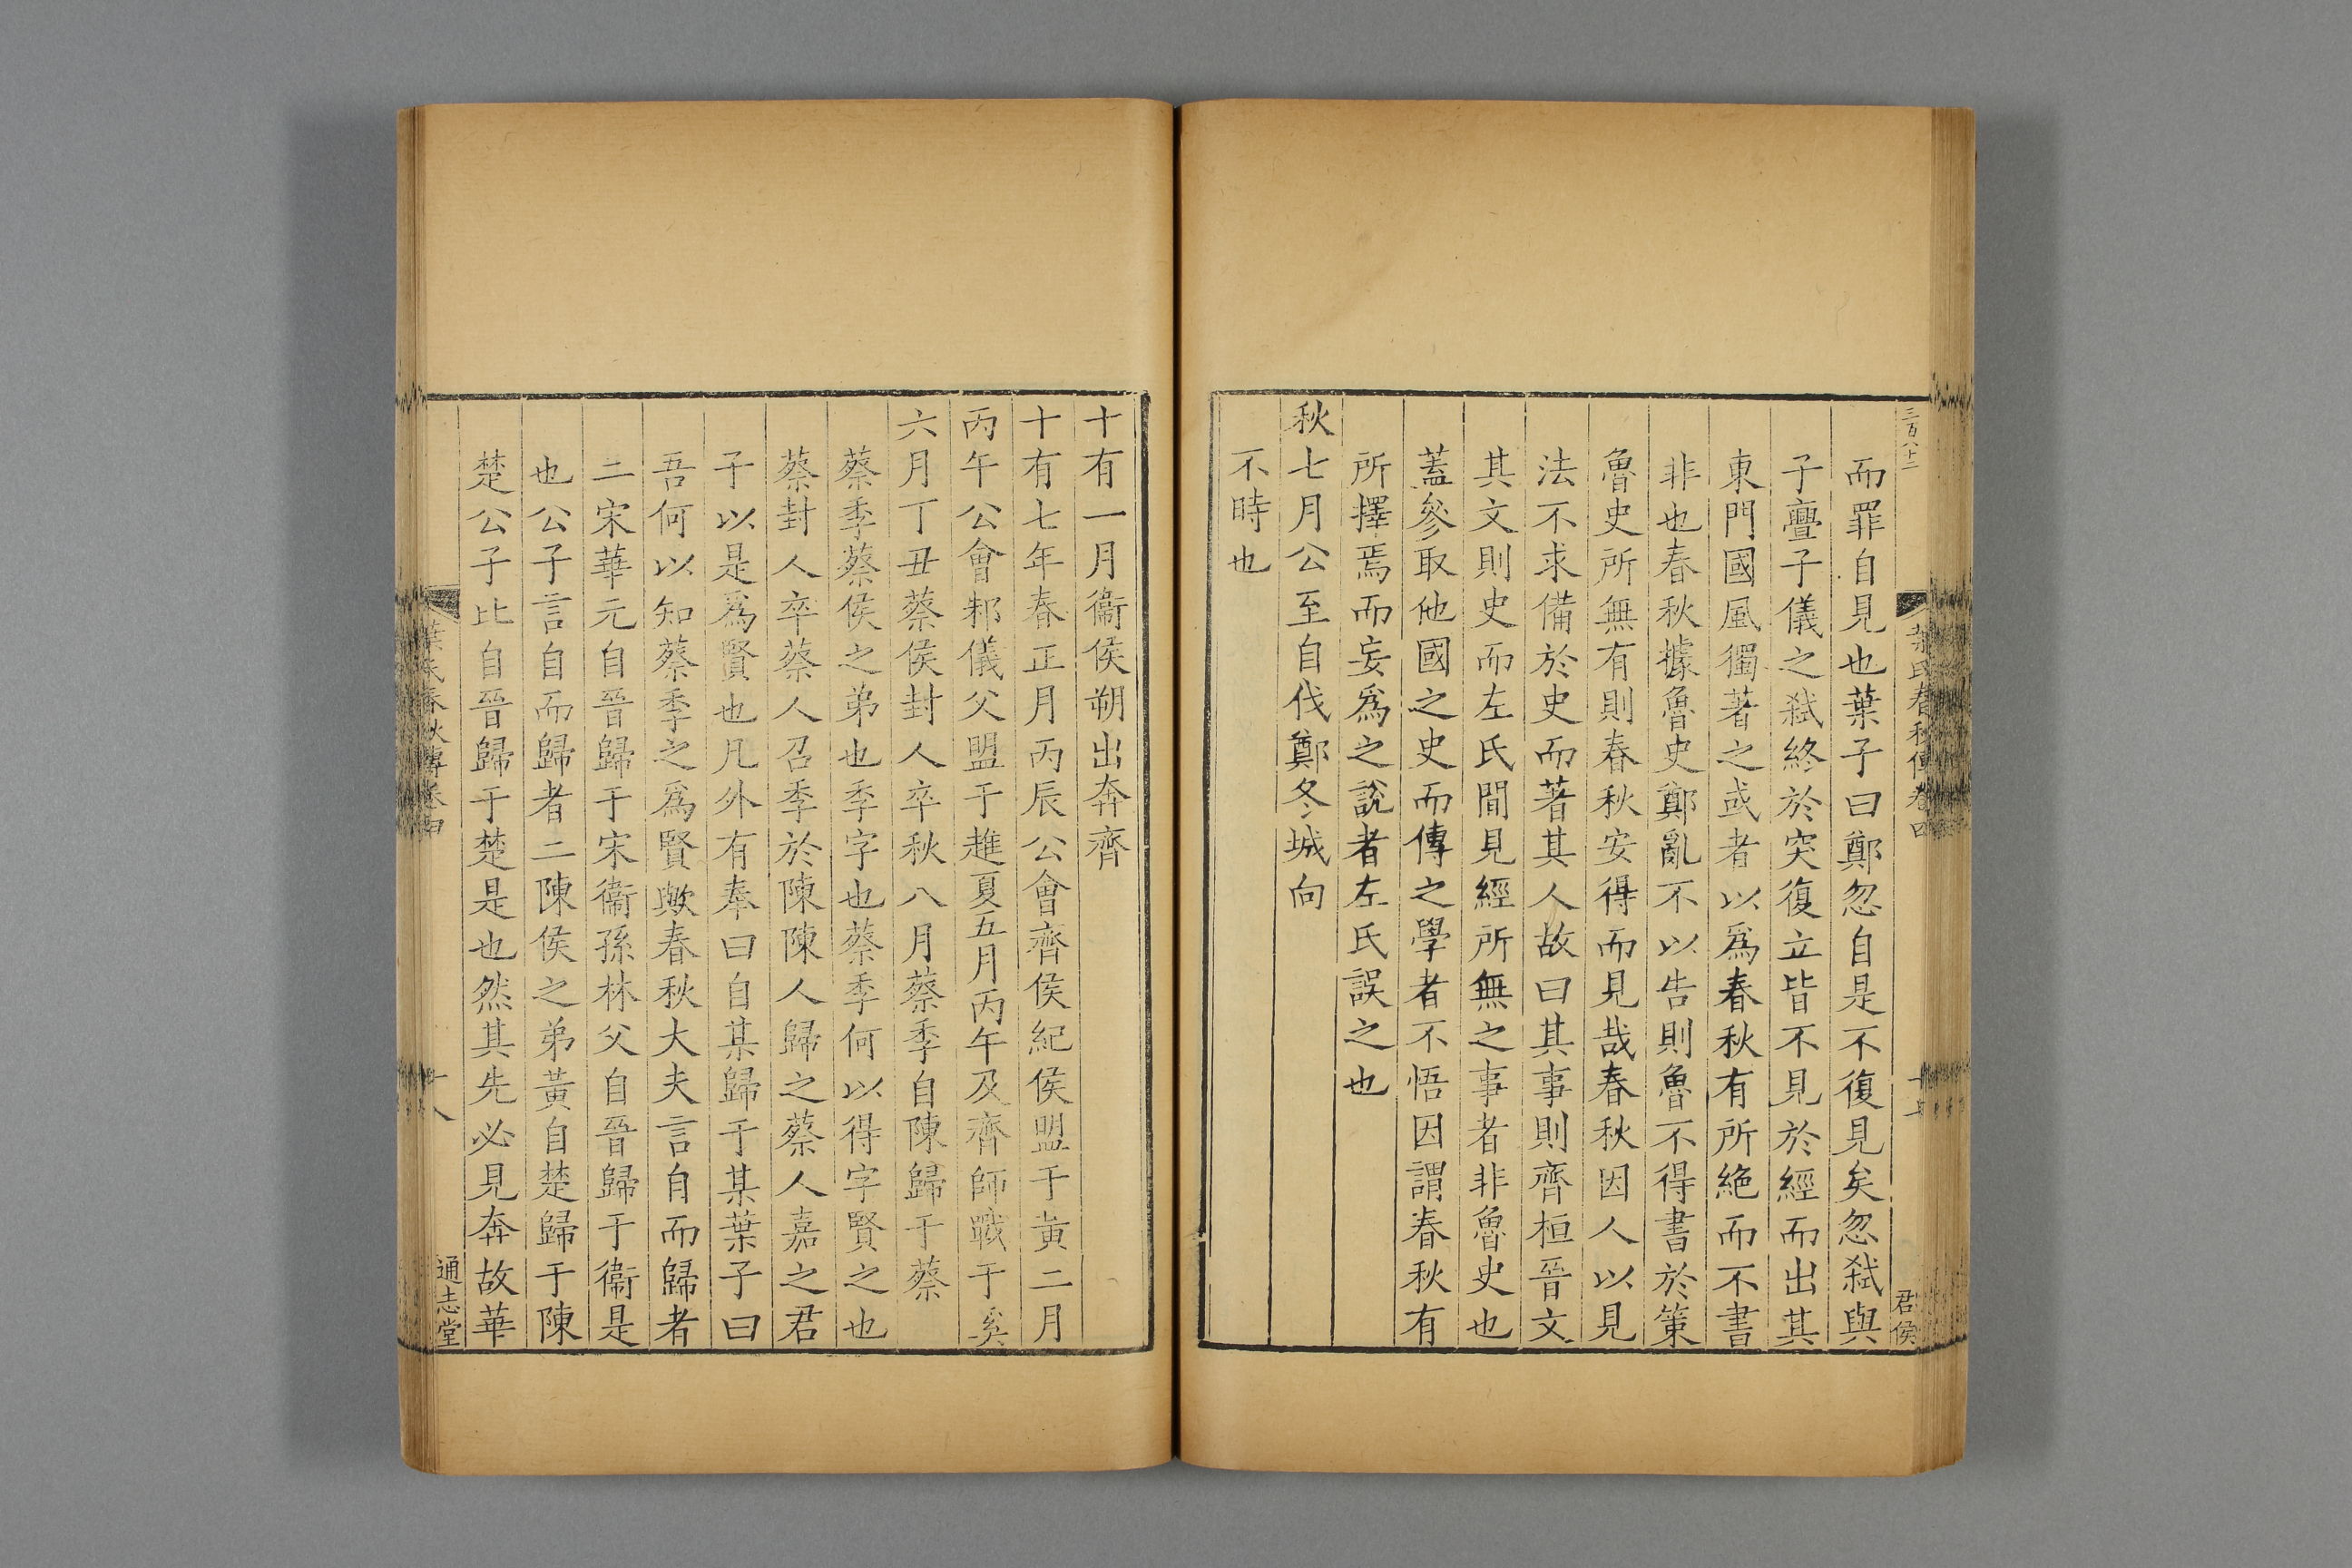 三百八十二
葉氏春秋傳卷四
君侯
而罪自見也葉子曰鄭忽自是不復見矣忽弑與
子亹子儀之弑終於突復立皆不見於經而出其
東門國風獨著之或者以爲春秋有所絶而不書
非也春秋據魯史鄭亂不以告則魯不得書於策
魯史所無有則春秋安得而見哉春秋因人以見
法不求備於史而著其人故曰其事則齊桓晉文
其文則史而左氏間見經所無之事者非魯史也
蓋參取他國之史而傳之學者不悟因謂春秋有
所擇焉而妄爲之說者左氏誤之也
秋七月公至自伐鄭冬城向
不時也
十有一月衞侯朔出奔齊
十有七年春正月丙辰公會齊侯紀侯盟于黃二月
丙午公會邾儀父盟于趡夏五月丙午及齊師戰于奚
六月丁丑蔡侯封人卒秋八月蔡季自陳歸于蔡
蔡季蔡侯之弟也季字也蔡季何以得字賢之也
蔡封人卒蔡人召季於陳陳人歸之蔡人嘉之君
子以是爲賢也凡外有奉曰自某歸于某葉子曰
吾何以知蔡季之爲賢歟春秋大夫言自而歸者
二宋華元自晉歸于宋衞孫林父自晉歸于衞是
也公子言自而歸者二陳侯之弟黃自楚歸于陳
楚公子比自晉歸于楚是也然其先必見奔故華
葉氏春秋傳卷四
十八
通志堂